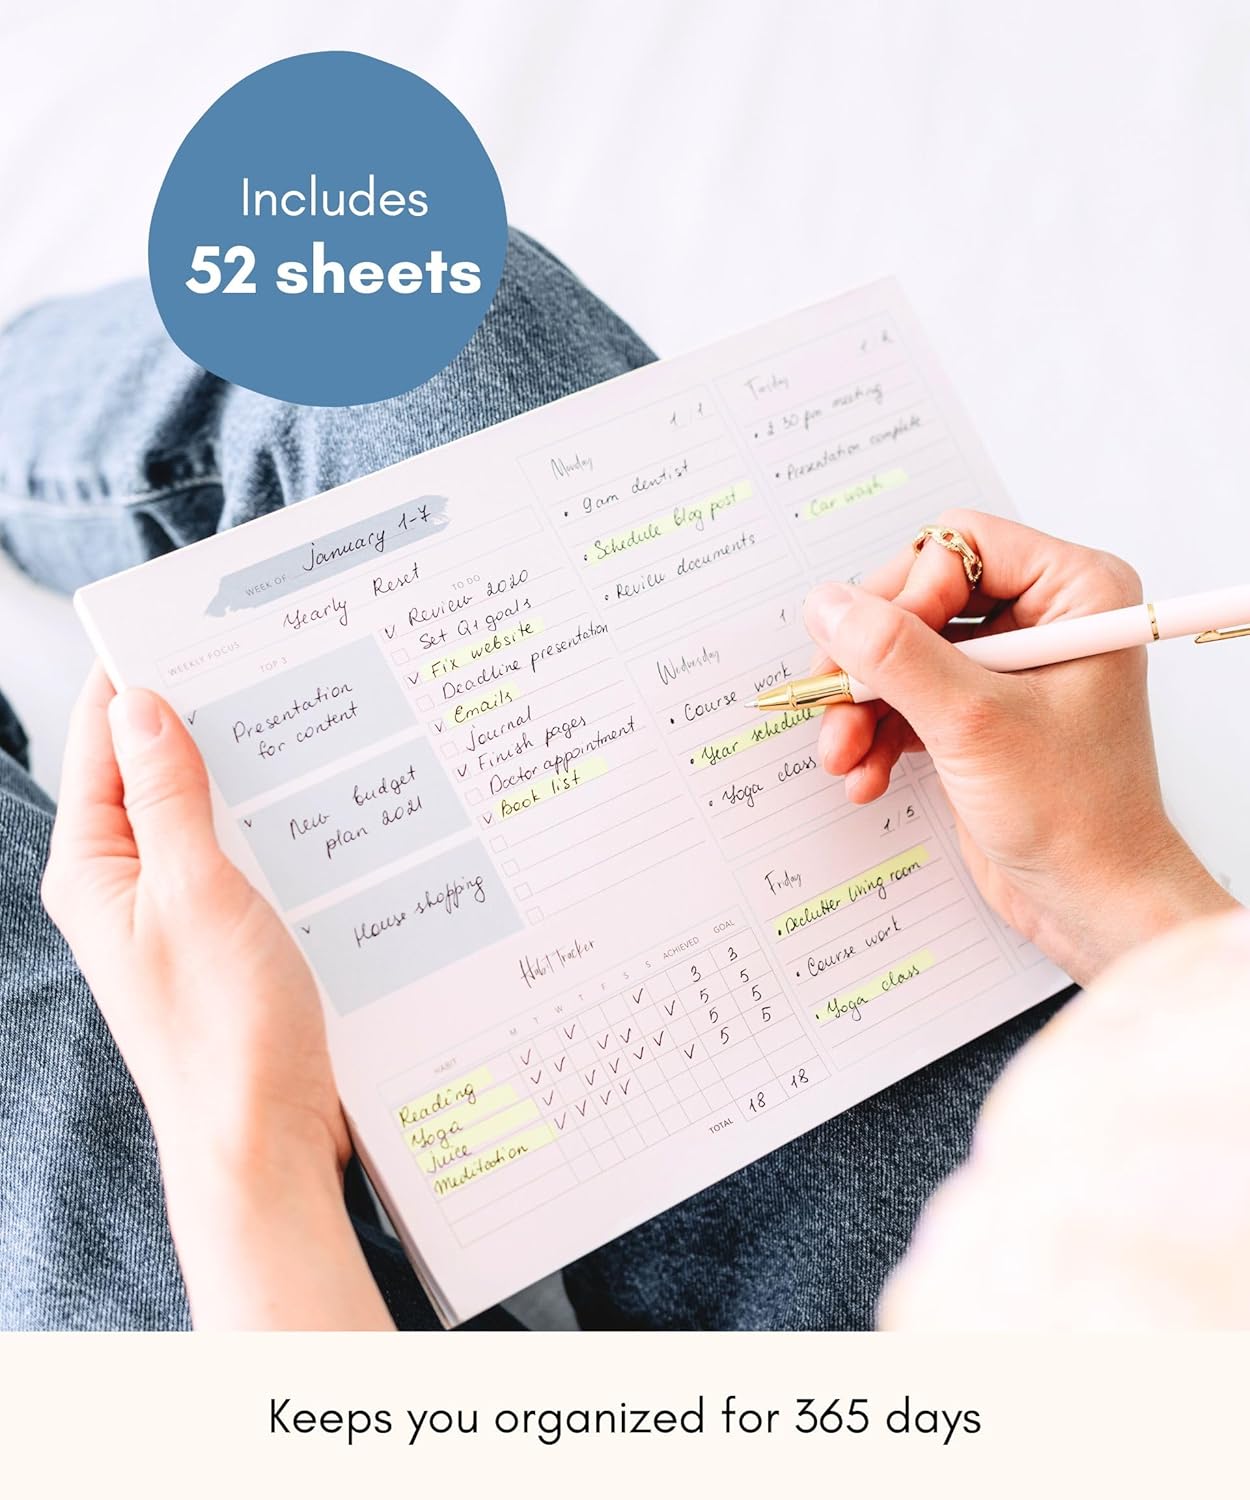 Includes
52 sheets
WEEK OF January 1-7
WEEKLY FOCUS Yearly Reset
TOP 3
Presentation
for content
New budget
plan 2021
House shopping
TO DO
Review 2020
Set Q1 goals
Fix website
Deadline presentation
Emails
Journal
Finish pages
Doctor appointment
Book list
Habit Tracker
HABIT M T W T F S S ACHIEVED GOAL
Reading 3 3
Yoga 5 5
Juice 5 5
Meditation 5 5
TOTAL 18 18
Monday 1/1
• 9am dentist
• Schedule blog post
• Review documents
Tuesday 1/2
• 2 30 pm meeting
• Presentation complete
• Car wash
Wednesday 1/
• Course work
• Year schedule
• Yoga class
Friday 1/5
• Declutter living room
• Course work
• Yoga class
Keeps you organized for 365 days